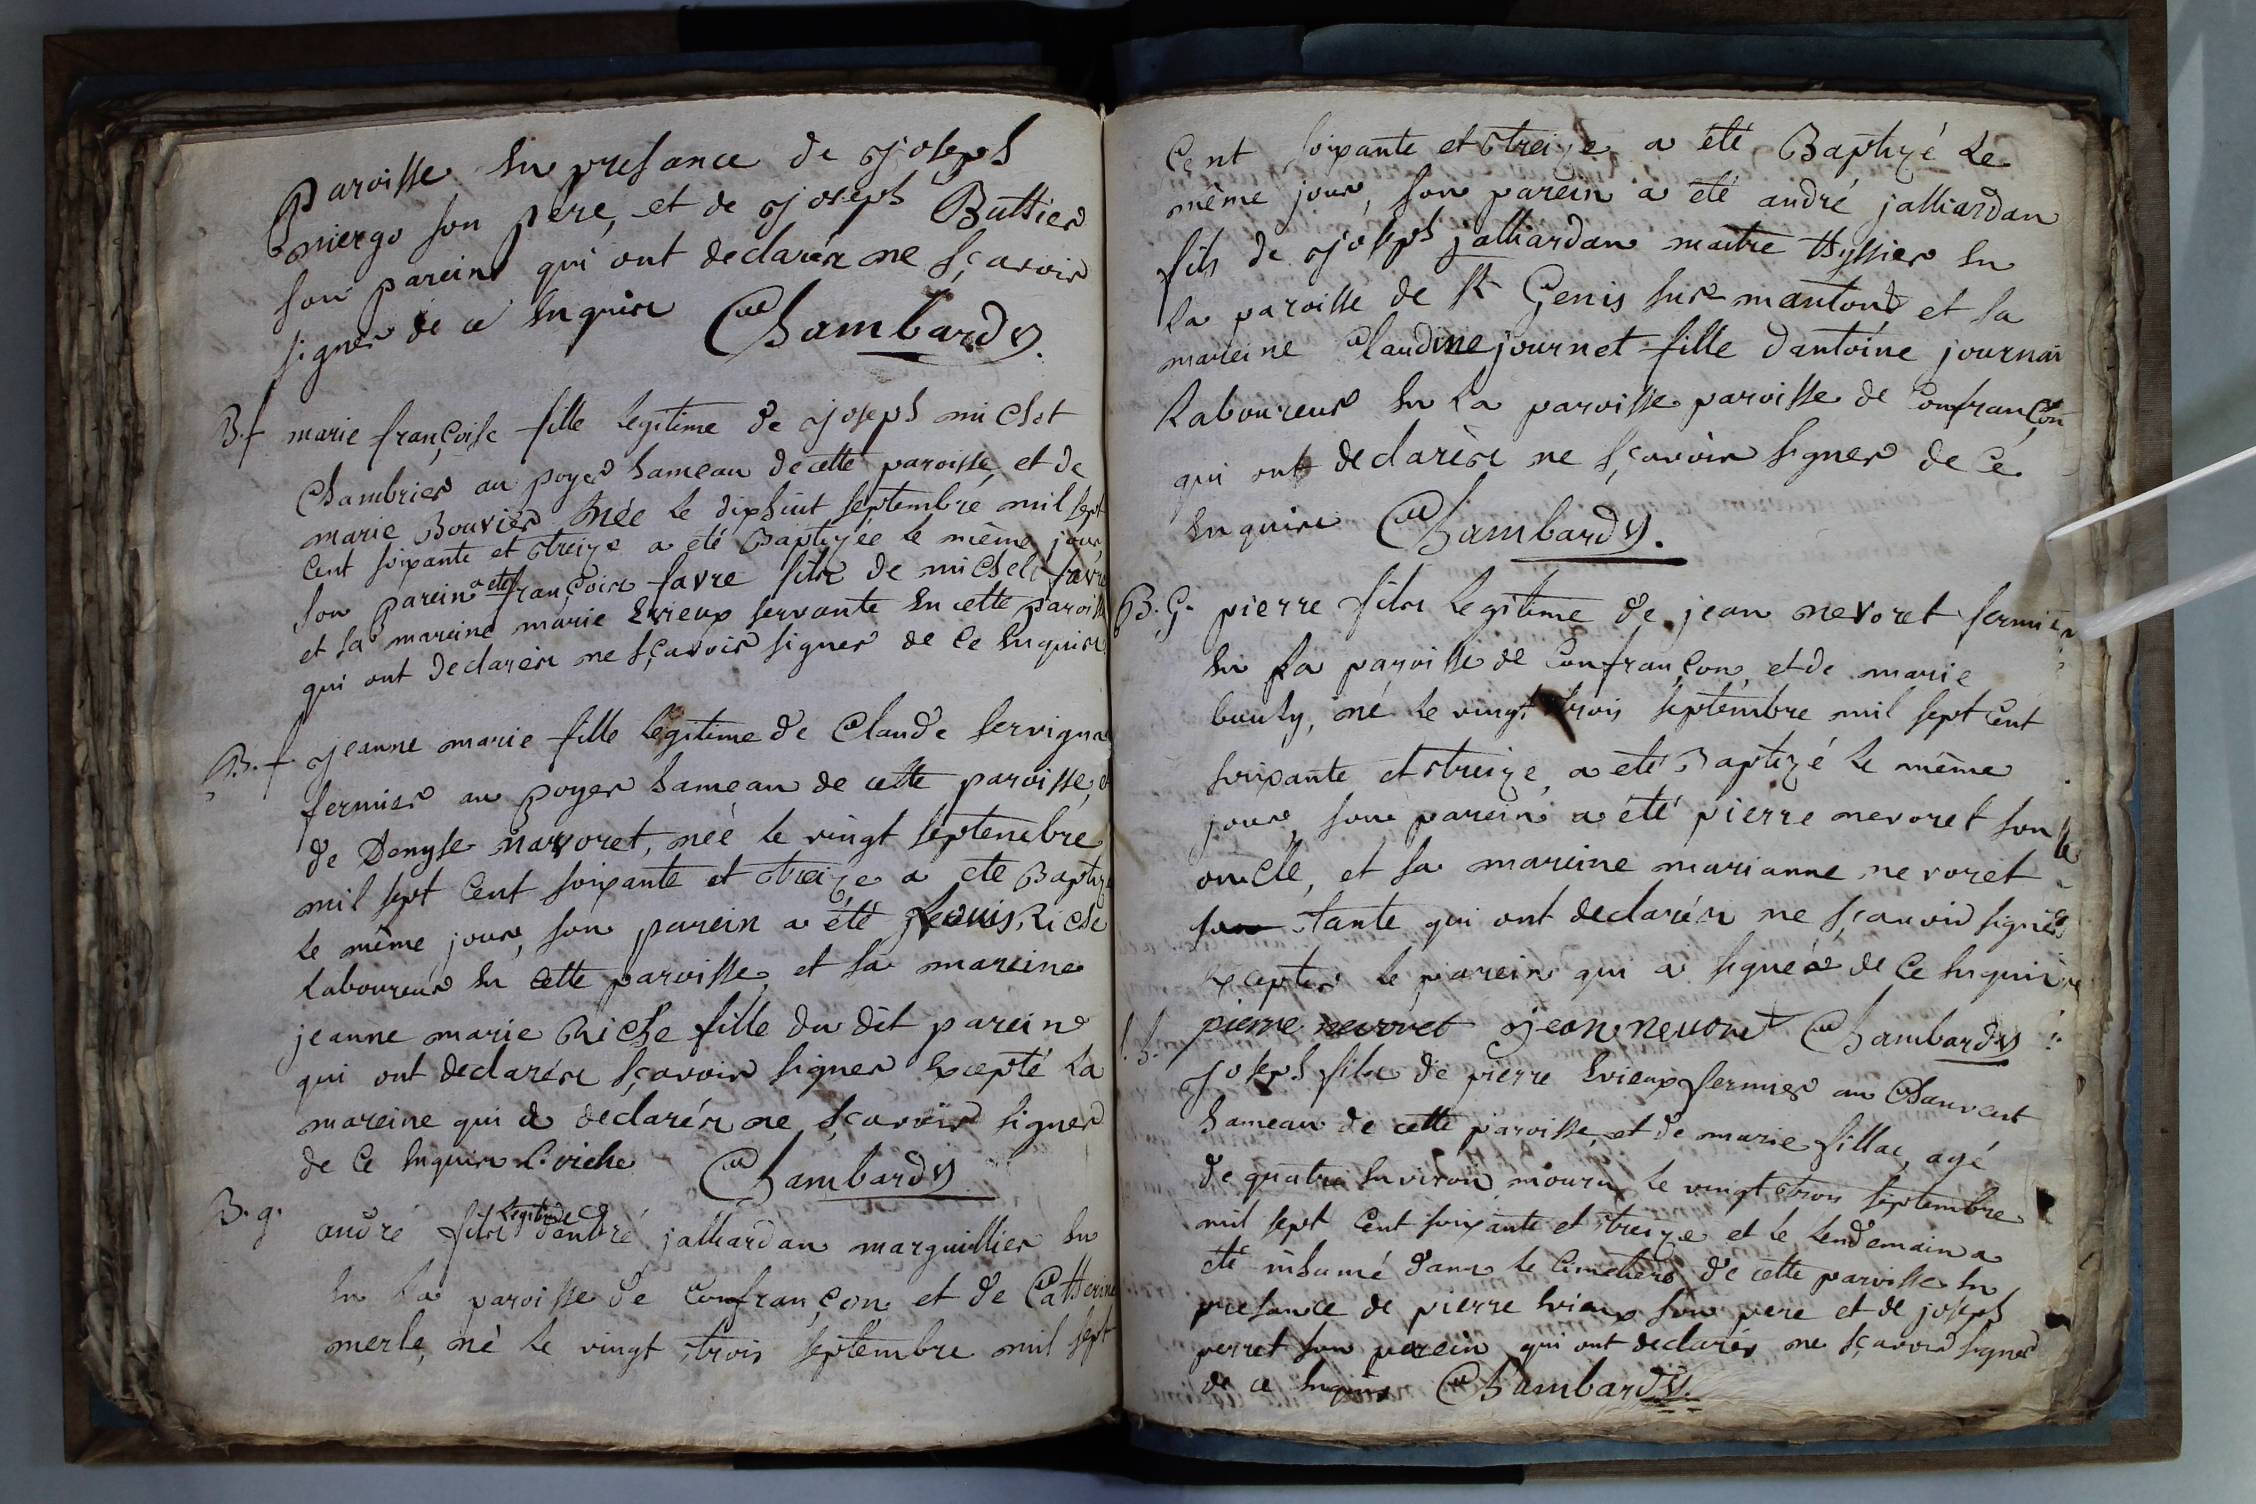 Paroisse En presance de joseph
niergo son pere, et de joseph Buttier
son parein qui ont declarés ne sçavoir
signer de ce Enquis Chambard y.
B.f marie françoise fille legitime de joseph michet
Chambrier au poyer hameau de cette paroisse, et de
marie Bouvier Née le dixhuit septembre mil sept
Cent soixante et treize a été Baptizée le même jour,
son parein a été françois favre fils de michel favre
et sa mareine marie Evieux servante En cette paroisse
qui ont declarés ne sçavoir signer de ce Enquis
B.f jeanne marie fille legitime de Claude servigna
fermier au poyer hameau de cette paroisse, et
de Denyse navoret, née le vingt septembre
mil sept Cent soixante et treize a eté Baptizé
le même jour, son parein a été Louis Riche
Laboureur En cette paroisse, et sa mareine
jeanne marie Riche fille du dit parein
qui ont declarés sçavoir signer Excepté la
mareine qui a declarés ne sçavoir signer
de ce Enquis L. riche Chambard y
B.g. andré fils legitime d'andré jalliardan marguillier En
En la paroisse de confrançon et de Catherine
merle, né le vingt trois septembre mil sept
Cent soixante et treize a été Baptizé le
même jour, son parein a été andré jalliardan
fils de joseph jalliardan maitre thyssier En
la paroisse de St Genis sur mantond et sa
mareine Claudine journet fille d'antoine journai
Laboureur En la paroisse paroisse de Confrançon
qui ont declarés ne sçavoir signer de Ce
Enquis Chambard y.
B.G. pierre fils legitime de jean nevoret fermier
En la paroisse de Confrançon, et de marie
bouly, né le vingt trois septembre mil sept Cent
soixante et treize, a eté Baptizé le même
jour, son parein a été pierre nevoret son
oncle, et sa mareine marianne nevoret
son tante qui ont declarés ne sçavoir signer
Excepter le parein qui a signé de Ce Enquis
pierre nevoret jean nevoret Chambard y
joseph fils de pierre Evieux fermier au Chanvent
hameau de cette paroisse, et de marie fillac, agé
de quatre Environ, mourut le vingt trois septembre
mil sept Cent soixante et treize et le lendemain a
été inhumé dans le Cimetiere de cette paroisse En
presance de pierre Evieux son pere et de joseph
perret son parein qui ont declarés ne sçavoir signer
de ce Enquis Chambard y.